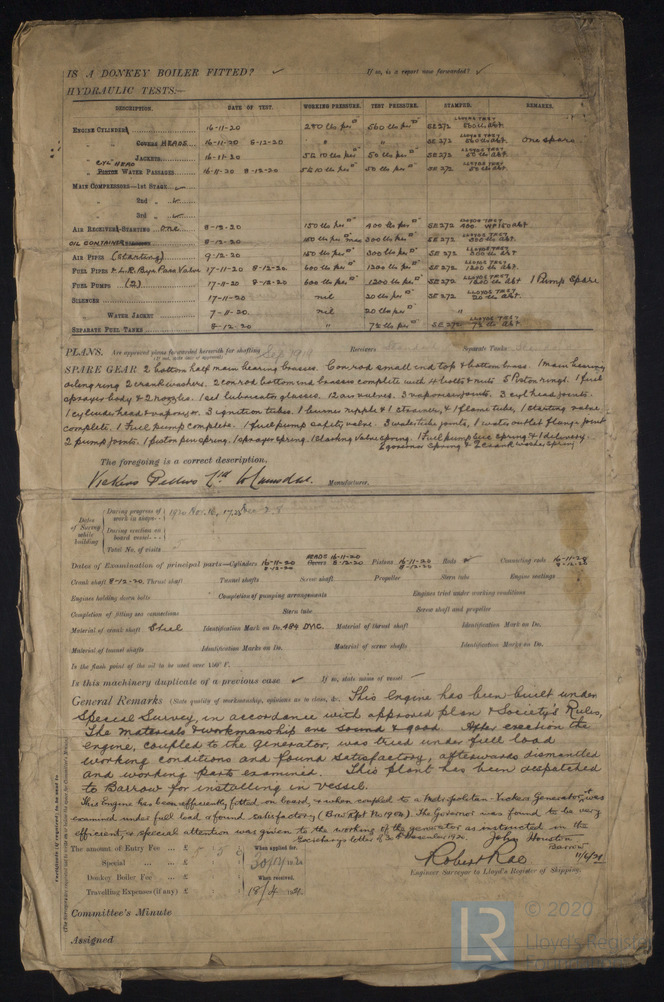 IS A DONKEY BOILER FITTED? ✓ If so, is a report now forwarded? ✓
HYDRAULIC TESTS:—
DESCRIPTION. DATE OF TEST. WORKING PRESSURE. TEST PRESSURE. STAMPED. REMARKS.
ENGINE CYLINDERS 16-11-20 280 lbs per □" 560 lbs per □" SE 272 LLOYDS TEST 560 lb
" COVERS HEADS 16-11-20 8-12-20 " " SE 272 one spare
" JACKETS 16-11-20 50 lbs per □" SE 272 50 lb
" CYL HEAD PISTON WATER PASSAGES 16-11-20 8-12-20 50 lbs per □" SE 272
MAIN COMPRESSORS—1ST STAGE ✓
" 2ND " ✓
" 3RD " ✓
AIR RECEIVERS—STARTING one 8-12-20 150 lbs per □" 400 lbs per □" SE 272 LLOYDS TEST 400 WP 150
OIL CONTAINER 8-12-20 300 lbs per □" SE 272 LLOYDS TEST
AIR PIPES (Starting) 9-12-20 150 lbs per □" 300 lbs per □" SE 272 LLOYDS TEST
FUEL PIPES & L.R. Bye Pass Valve 17-11-20 8-12-20 600 lbs per □" 1200 lbs per □" SE 272 LLOYDS TEST 1200 lb
FUEL PUMPS (2) 17-11-20 8-12-20 600 lbs per □" 1200 lbs per □" SE 272 LLOYDS TEST 1 Pump Spare
SILENCER 17-11-20 nil 20 lbs per □" SE 272 LLOYDS TEST 20 lb
" WATER JACKET 7-11-20 nil 20 lbs per □" "
SEPARATE FUEL TANKS 8-12-20 " 7½ lbs per □" SE 272 LLOYDS TEST 7½ lb
PLANS. Are approved plans forwarded herewith for shafting Receivers Separate Tanks
(If not, state date of approval)
SPARE GEAR 2 bottom half main bearing brasses. Con rod small end top & bottom brass. 1 main bearing
oiling ring 2 crank washers. 2 con rod bottom end brasses complete with 4 bolts & nuts 5 Piston rings. 1 fuel
sprayer body & 2 nozzles. 1 set lubricator glasses. 12 air valves. 3 vaporiser joints. 3 cyl head joints.
1 cylinder head & vaporiser. 3 ignition tubes. 1 burner nipple & 1 cleaner, & 1 flame tube, 1 starting valve
complete. 1 Fuel pump complete. 1 fuel pump safety valve. 3 water tube joints, 1 water outlet flange joint
2 pump joints, 1 piston pin spring. 1 sprayer spring. 1 starting valve spring. 1 Fuel pump spring & 1 delivery.
The foregoing is a correct description,
Vickers Petters Ltd Manufacturer.
Dates of Survey while building
During progress of work in shops - - 1920 Nov. 16, 17,
During erection on board vessel - - -
Total No. of visits
Dates of Examination of principal parts—Cylinders 16-11-20 8-12-20 HEADS Covers 16-11-20 8-12-20 Pistons 16-11-20 8-12-20 Rods ✓ Connecting rods 16-11-20 8-12-20
Crank shaft 8-12-20. Thrust shaft Tunnel shafts Screw shaft Propeller Stern tube Engine seatings
Engines holding down bolts Completion of pumping arrangements Engines tried under working conditions
Completion of fitting sea connections Stern tube Screw shaft and propeller
Material of crank shaft Steel Identification Mark on Do. 484 DMC. Material of thrust shaft Identification Mark on Do.
Material of tunnel shafts Identification Marks on Do. Material of screw shafts Identification Marks on Do.
Is the flash point of the oil to be used over 150° F.
Is this machinery duplicate of a previous case ✓ If so, state name of vessel
General Remarks (State quality of workmanship, opinions as to class, &c. This Engine has been built under
Special Survey, in accordance with approved plan & Society's Rules,
The materials & workmanship are sound & good After erection the
engine, coupled to the generator, was tried under full load
working conditions and found satisfactory, afterwards dismantled
and working parts examined. This plant has been despatched
to Barrow for installing in vessel.
This Engine has been efficiently fitted on board, & when coupled to a Metropolitan-Vickers Generator, it was
examined under full load & found satisfactory (Bow Rpt No 1952). The Governor was found to be very
efficient, & special attention was given to the working of the generator as instructed in the
Secretary's letter of 30 November 1920. John Houston
Barrow
11/6/21
The amount of Entry Fee ... £ : : When applied for.
Special ... ... £ : : 30/12/1920
Donkey Boiler Fee ... ... £ : : When received.
Travelling Expenses (if any) £ : : 18/4 1921
Robert Rae
Engineer Surveyor to Lloyd's Register of Shipping.
Committee's Minute
Assigned
LR © 2020
Lloyd's Register